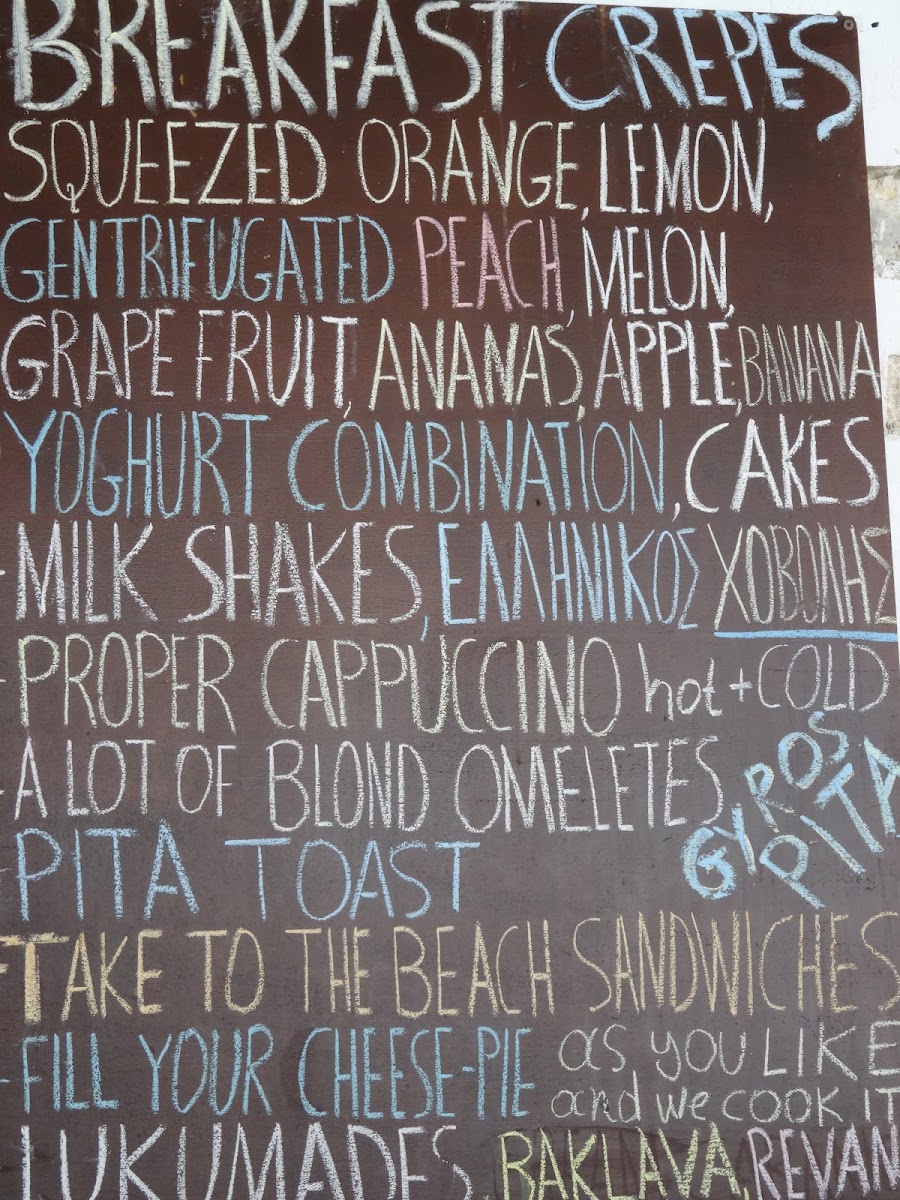 BREAKFAST CREPES
SQUEEZED ORANGE, LEMON,
GENTRIFUGATED PEACH, MELON,
GRAPE FRUIT, ANANAS, APPLE, BANANA
YOGHURT COMBINATION, CAKES
-MILK SHAKES, ΕΛΛΗΝΙΚΟΣ ΧΟΒΟΛΗΣ
-PROPER CAPPUCCINO hot + COLD
-A LOT OF BLOND OMELETES
GYROS
PITA
-PITA TOAST
-TAKE TO THE BEACH SANDWICHES
-FILL YOUR CHEESE-PIE as YOU LIKE
and we COOK IT
LUKUMADES, BAKLAVA, REVAN